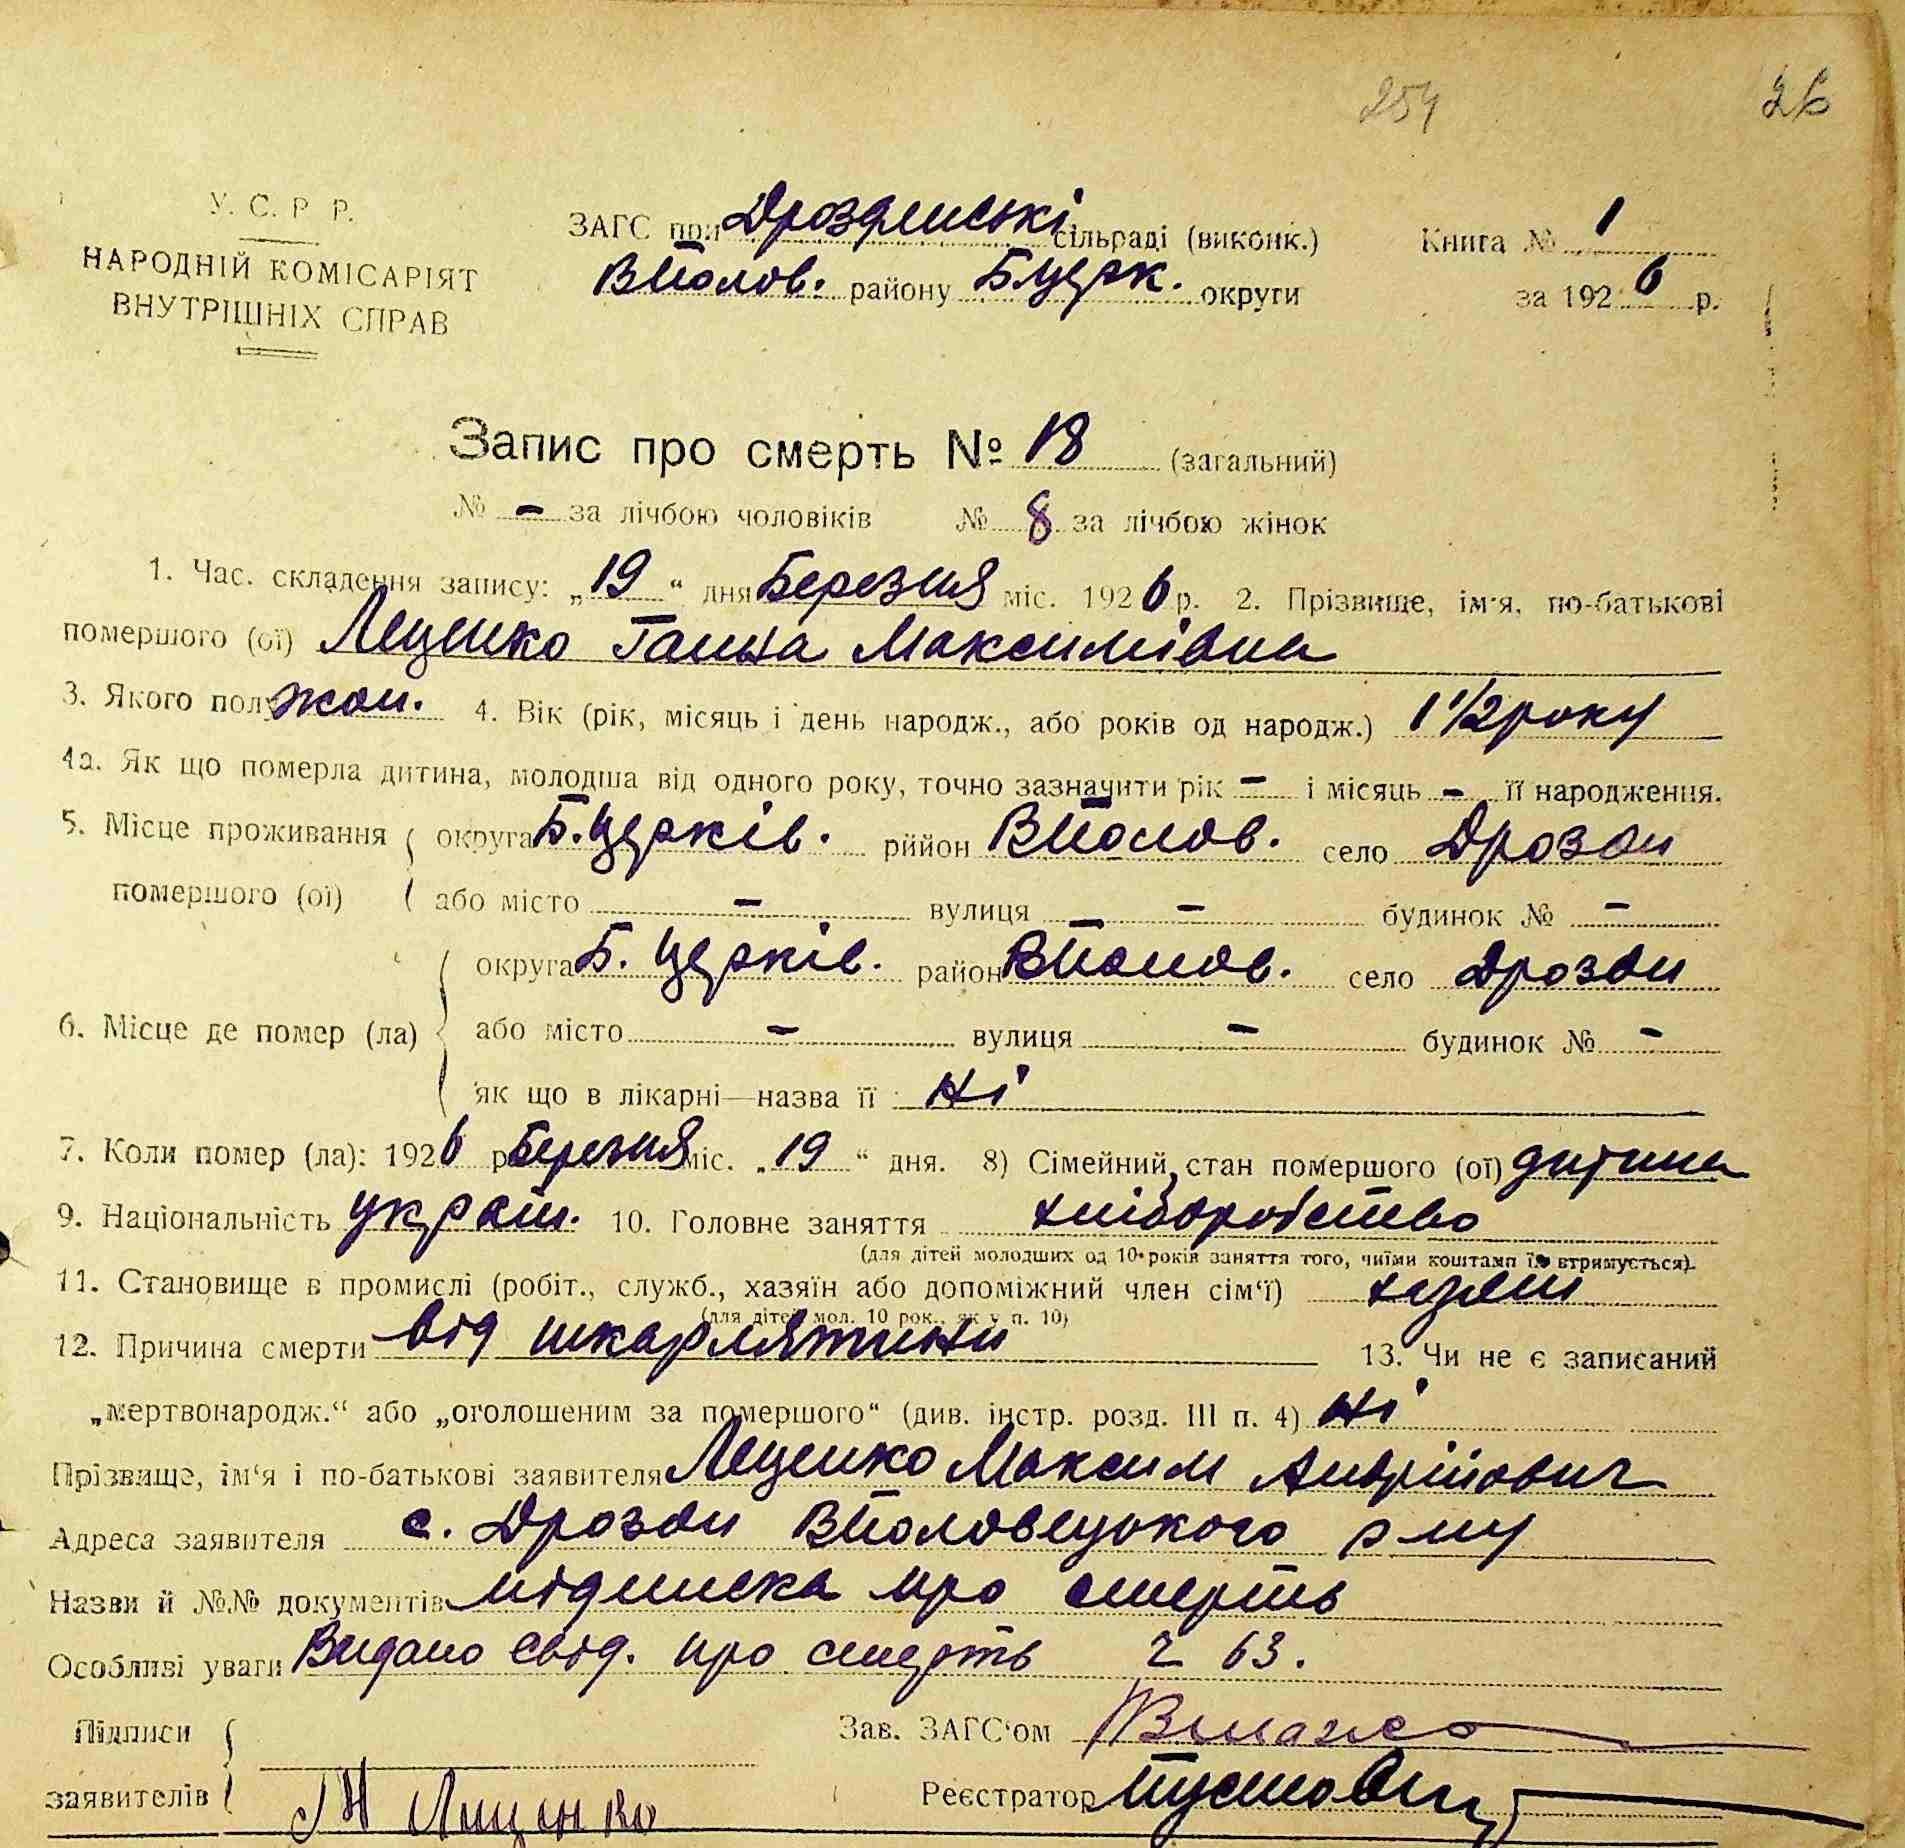 254
26
У. С. Р Р.
НАРОДНІЙ КОМІСАРІЯТ
ВНУТРІШНІХ СПРАВ
ЗАГС при Дроздянські сільраді (виконк.)
Книга № 1
ВПолов. району Б.Церк. округи
за 1926 р.
Запис про смерть № 18 (загальний)
№ - за лічбою чоловіків № 8 за лічбою жінок
1. Час. складення запису: „19“ дня Березня міс. 1926 р. 2. Прізвище, ім'я, по-батькові
помершого (ої) Леценко Ганна Максимівна
3. Якого полу жон. 4. Вік (рік, місяць і день народж., або років од народж.) 1 1/2 року
4а. Як що померла дитина, молодша від одного року, точно зазначити рік - і місяць - її народження.
5. Місце проживання округа Б.Церків. рййон ВПолов. село Дрозди
помершого (ої) або місто - вулиця - будинок № -
округа Б. Церків. район ВПолов. село Дрозди
6. Місце де помер (ла) або місто - вулиця - будинок № -
як що в лікарні—назва її Ні
7. Коли помер (ла): 1926 р Березня міс. „19“ дня. 8) Сімейний стан помершого (ої) дитина
9. Національність україн. 10. Головне заняття хліборобство
(для дітей молодших од 10 років заняття того, чиїми коштами їх втримується).
11. Становище в промислі (робіт., служб., хазяїн або допоміжний член сім'ї) хазяїн
(для дітей мол. 10 рок., як у п. 10)
12. Причина смерти від шкарлятини 13. Чи не є записаний
„мертвонародж.“ або „оголошеним за помершого“ (див. інстр. розд. III п. 4) Ні
Прізвище, ім'я і по-батькові заявителя Леценко Максим Андрійович
Адреса заявителя с. Дрозди ВПоловецького р-ну
Назви й №№ документів підписка про смерть
Особливі уваги Видано свід. про смерть ч 63.
Підписи
Зав. ЗАГС'ом
заявителів М Лищенко
Реєстратор